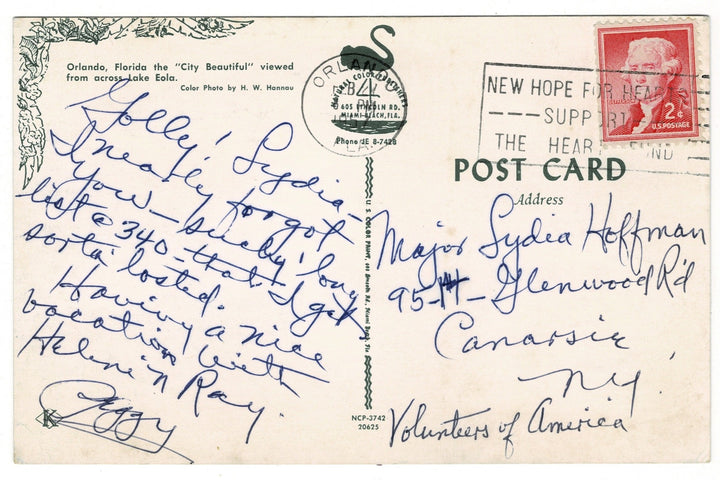 Orlando, Florida the "City Beautiful" viewed
from across Lake Eola.
Color Photo by H. W. Hannau
Golly! Lydia-
I nearly forgot
you- such a long
list @ 340- that I get
sorta' losted.
Having a nice
vacation with
Helene 'n Ray.
Peggy
K
ORLANDO
4
PM
FLA.
NATIONAL COLOR
605 LINCOLN RD.
MIAMI BEACH, FLA.
Phone JE 8-7428
U S COLOR PRINT,
NCP-3742
20625
NEW HOPE FOR HEARTS
SUPPORT
THE HEART FUND
2¢
U.S. POSTAGE
POST CARD
Address
Major Lydia Hoffman
95-14- Glenwood R'd
Canarsie
N.Y.
Volunteers of America